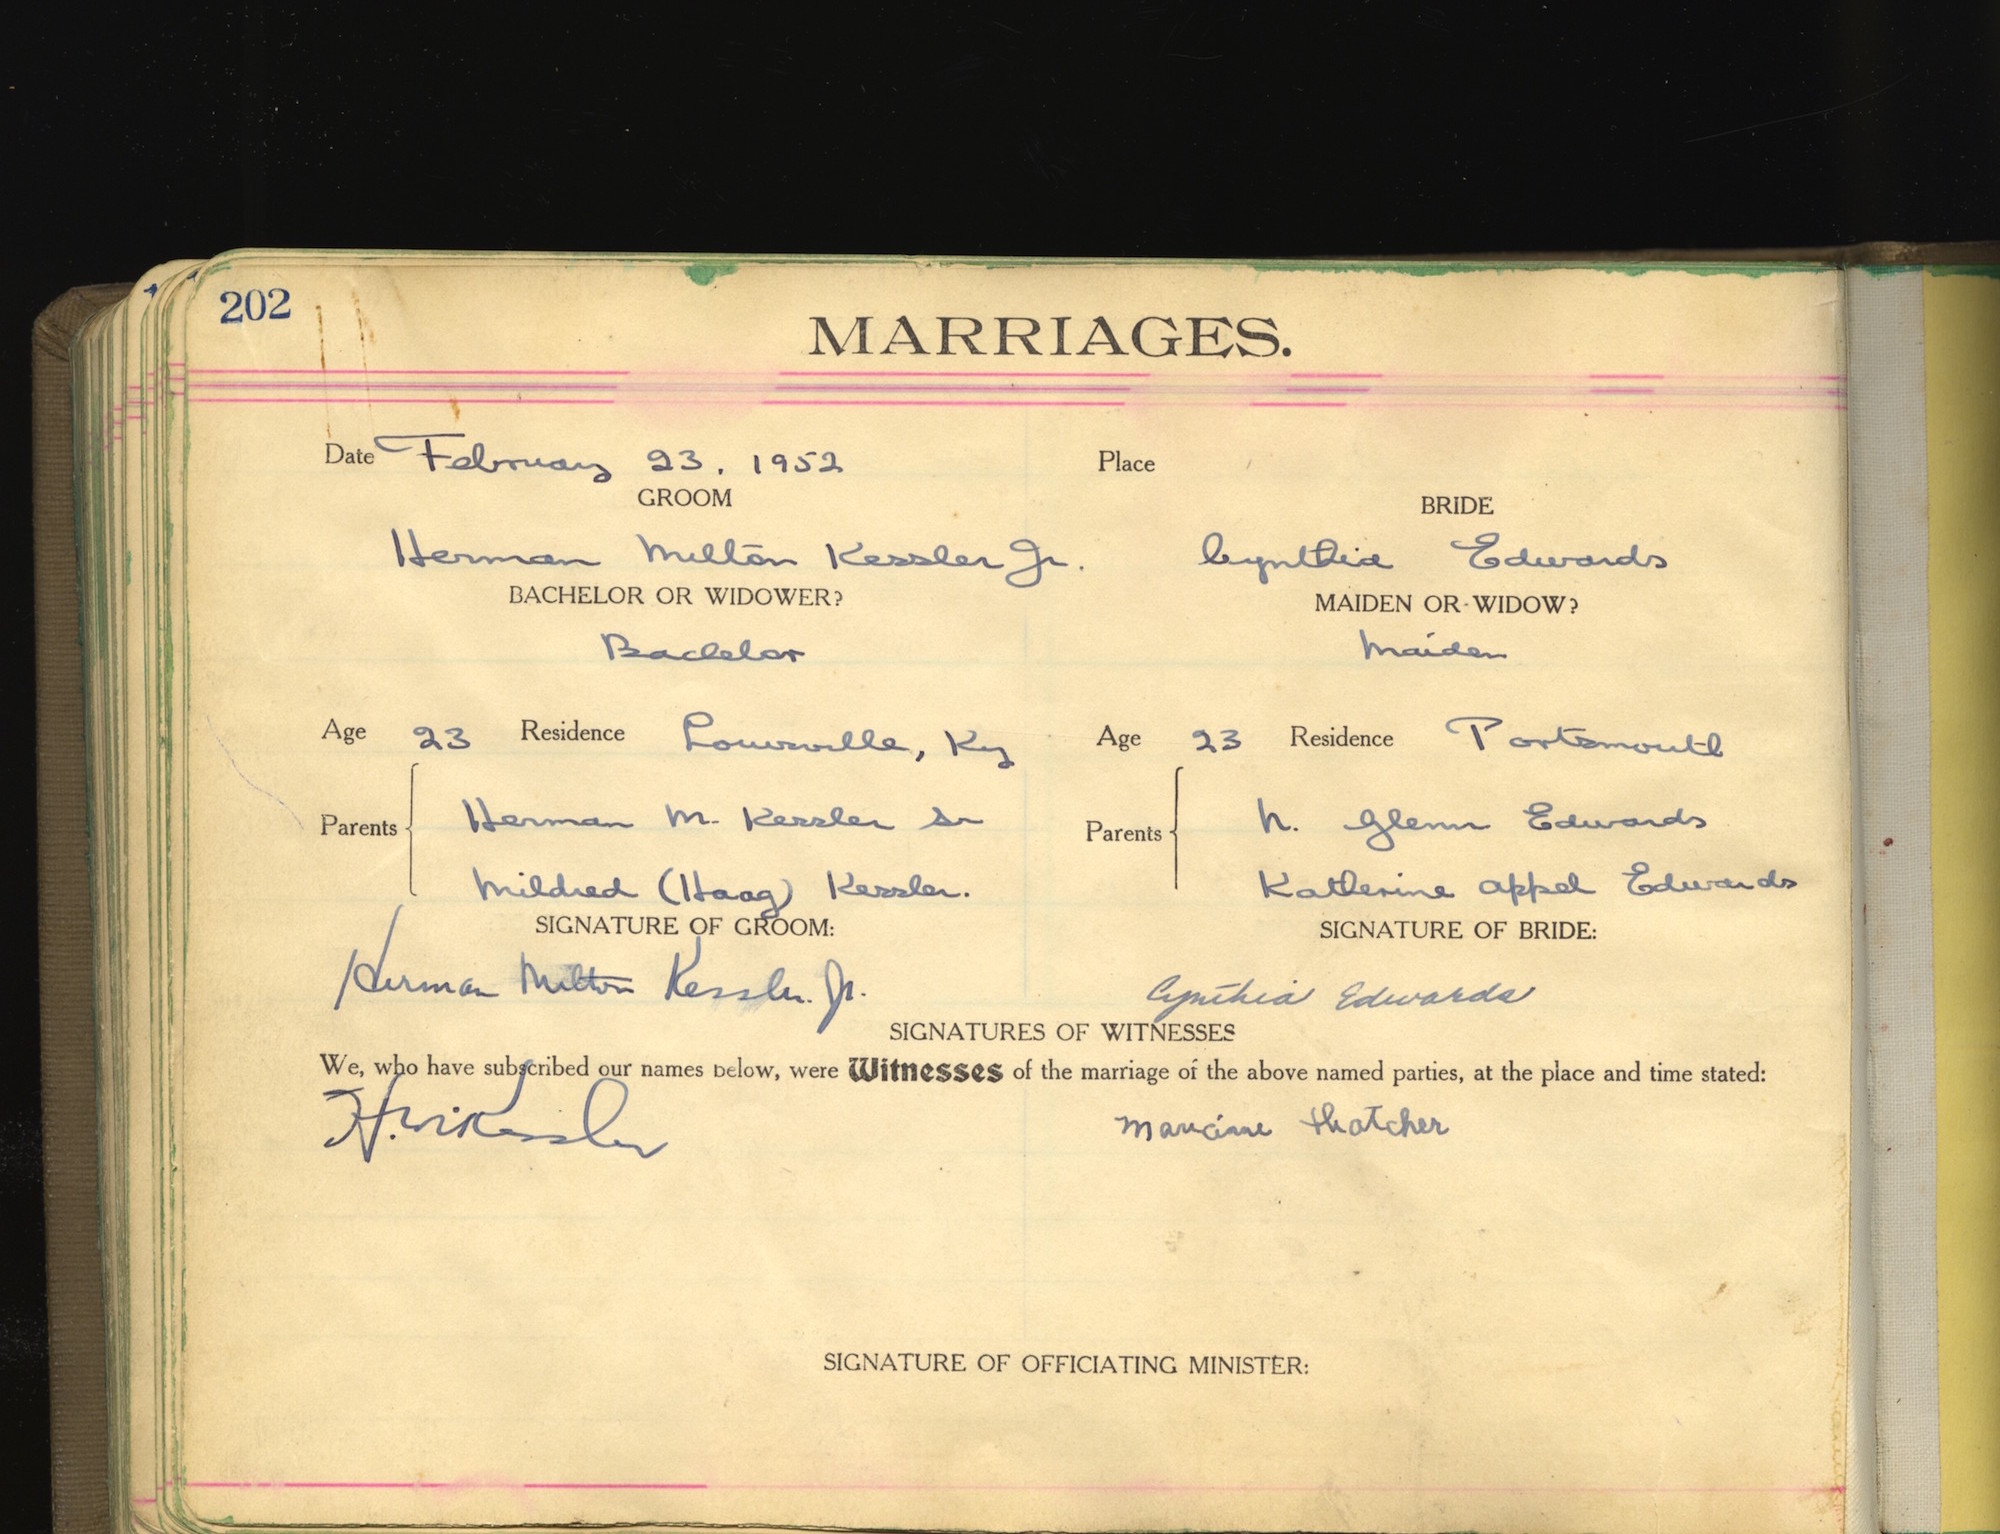 202
MARRIAGES.
Date February 23, 1952 Place
GROOM BRIDE
Herman Milton Kessler Jr. Cynthia Edwards
BACHELOR OR WIDOWER? MAIDEN OR WIDOW?
Bachelor Maiden
Age 23 Residence Louisville, Ky Age 23 Residence Portsmouth
Parents Herman M. Kessler Sr Parents N. Glenn Edwards
Mildred (Haag) Kessler. Katherine Appel Edwards
SIGNATURE OF GROOM: SIGNATURE OF BRIDE:
Herman Milton Kessler. Jr. Cynthia Edwards
SIGNATURES OF WITNESSES
We, who have subscribed our names below, were Witnesses of the marriage of the above named parties, at the place and time stated:
H. M Kessler Thatcher
SIGNATURE OF OFFICIATING MINISTER: